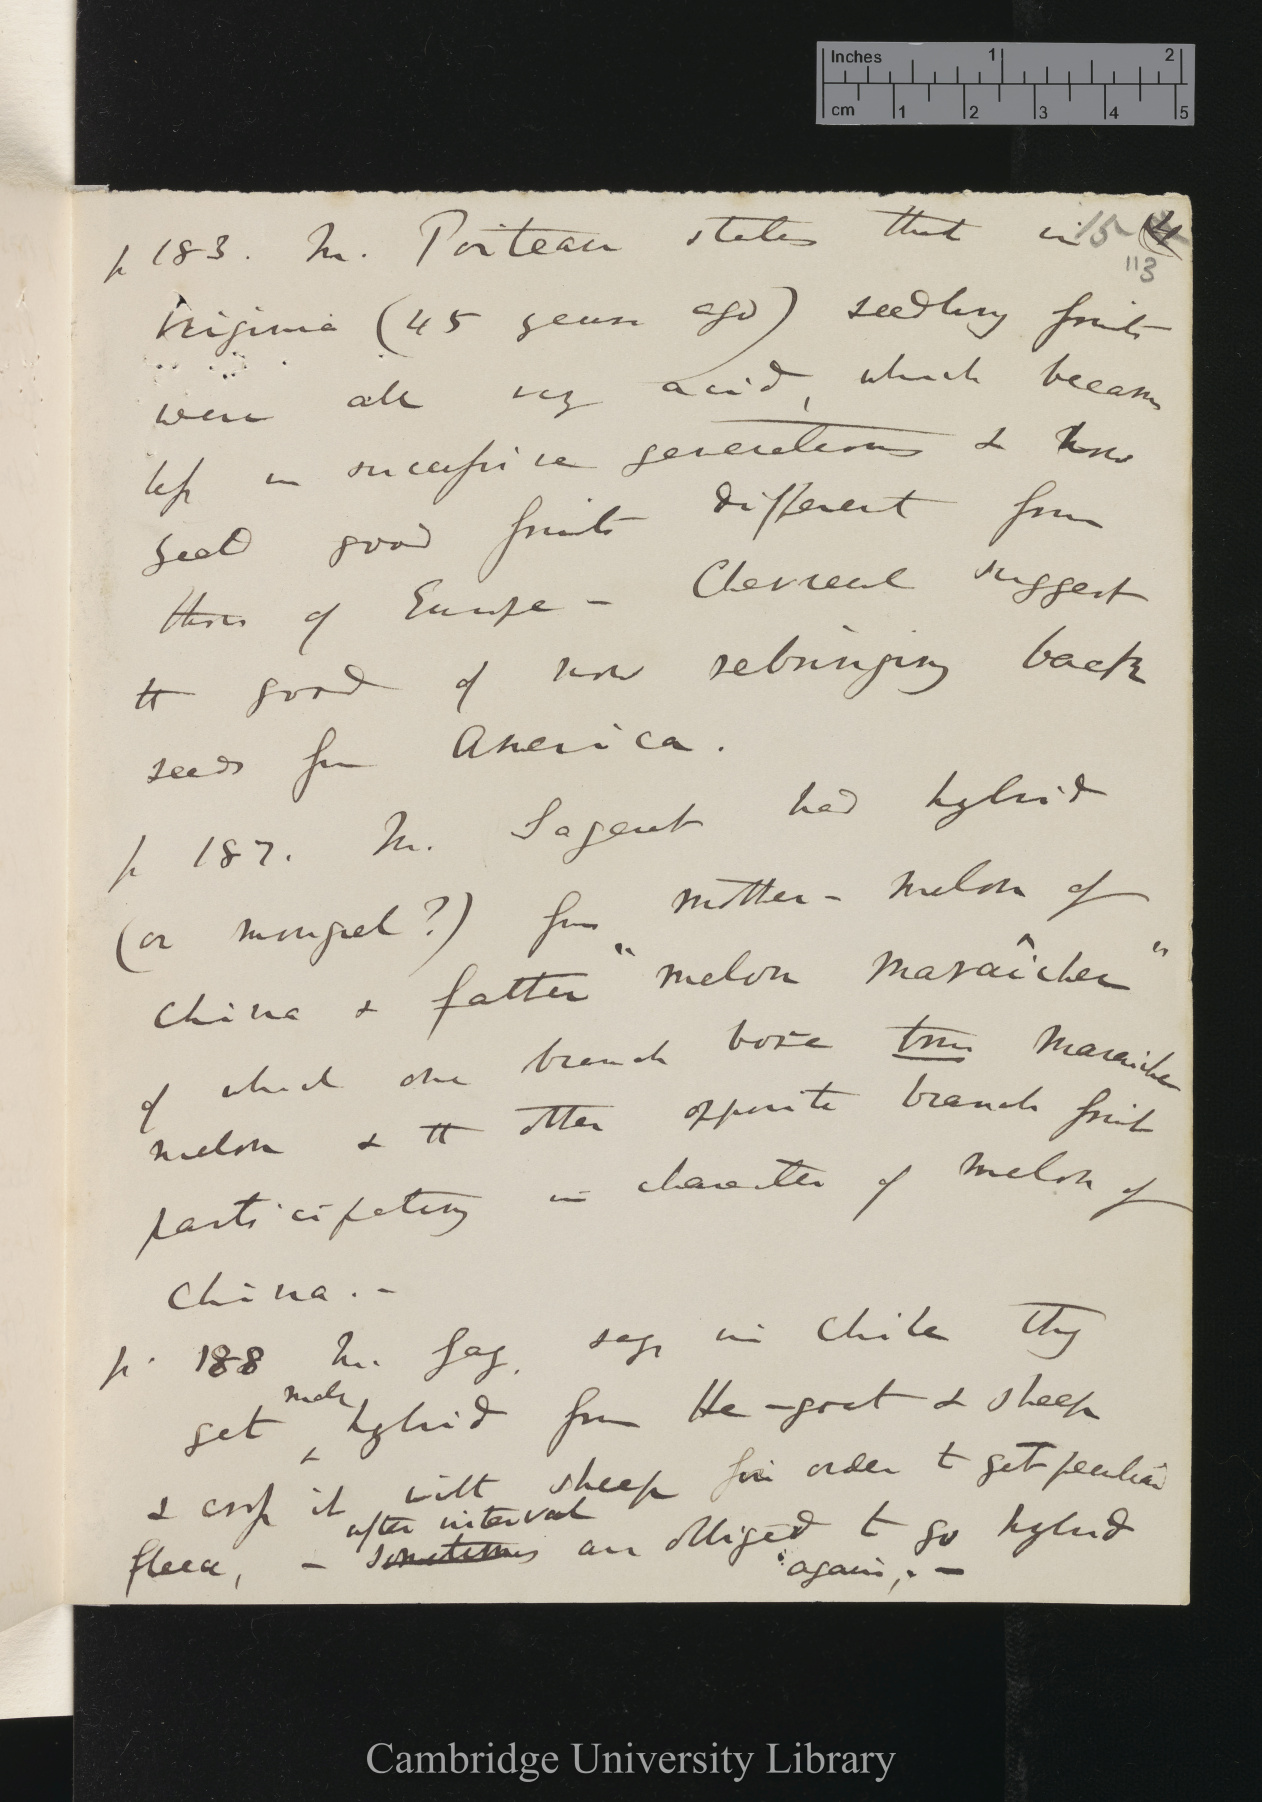 Inches 1 2
cm 1 2 3 4 5
15
113
p 183. M. Poiteau states that in
Virginia (45 years ago) seedling fruits
were all very acid, which became
less in successive generations & now
good fruits different from
those of Europe – Chevreul suggest
the good of now rebringing back
seeds from America.
p 187. M. Sageret had hybrid
(or mongrel?) from mother-melon of
China & father "melon Maraîcher"
of which one branch bore true Maraicher
melon & the other opposite branch fruit
participating in character of melon of
China.–
p. 188 M. Gay. says in Chile they
get male hybrid from He-goat & sheep
& cross it with sheep in order to get peculiar
after interval
fleece, – sometimes are obliged to go hybrid
again,.–
Cambridge University Library